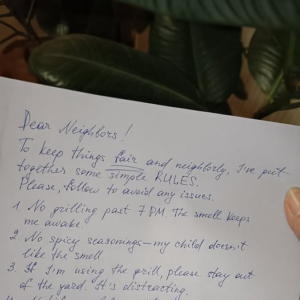 Dear Neighbors!
To keep things fair and neighborly, I've put
together some simple RULES.
Please, follow to avoid any issues.
1. No grilling past 7 PM. The smell keeps
me awake
2. No spicy seasonings — my child doesn't
like the smell
3. If I'm using the grill, please stay out
of the yard. It's distracting.